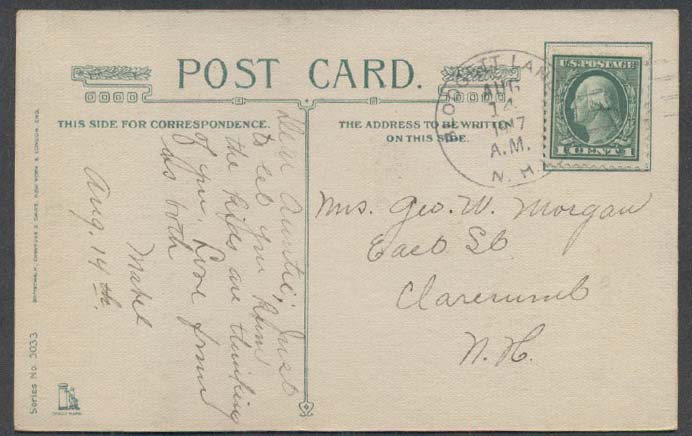 POST CARD.
THIS SIDE FOR CORRESPONDENCE.
THE ADDRESS TO BE WRITTEN
ON THIS SIDE.
U.S. POSTAGE
1 CENT 1
AUG
14
A.M.
N.H.
Dear Auntie; Just
to let you know
the kids are thinking
of you. Love from
us both
Mabel
Aug. 14th.
Mrs. Geo. W. Morgan
East St
Claremont
N.H.
Series No. 3033